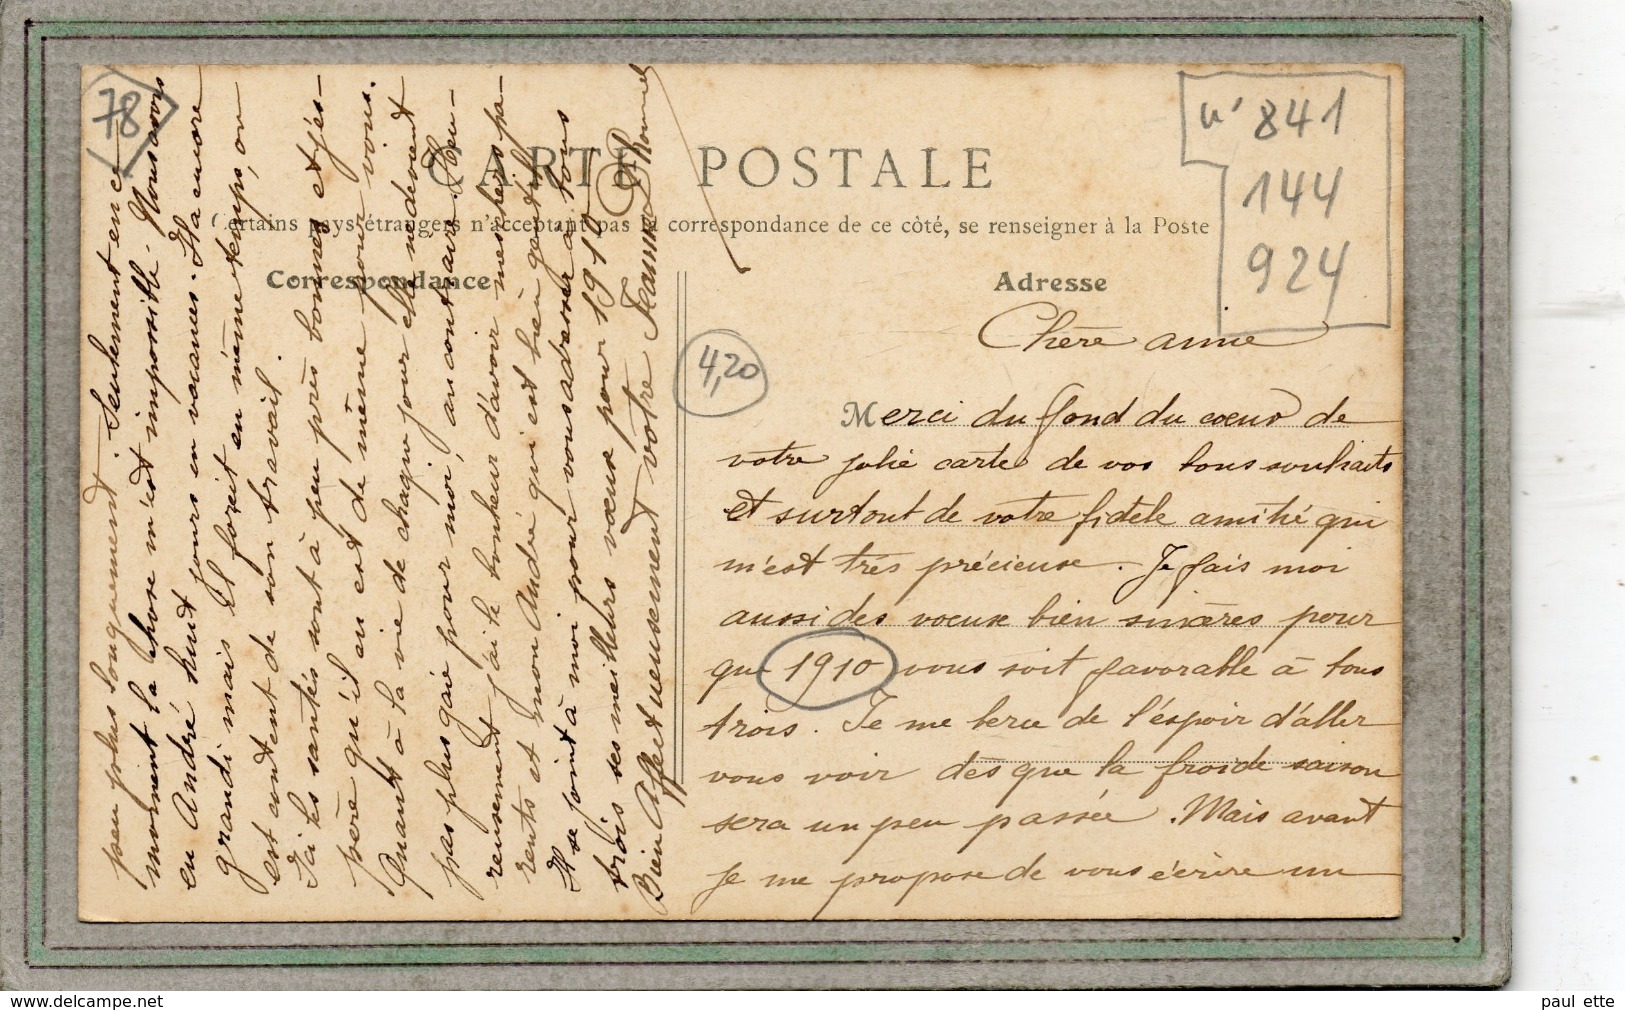 78
CARTE POSTALE
Certains pays étrangers n'acceptant pas la correspondance de ce côté, se renseigner à la Poste
Correspondance
Adresse
n° 841
144
924
4,20
Chère amie
Merci du fond du coeur de
votre jolie carte de vos bons souhaits
et surtout de votre fidèle amitié qui
m'est très précieuse. Je fais moi
aussi des voeux bien sincères pour
que 1910 vous soit favorable à tous
trois. Je me berce de l'espoir d'aller
vous voir dès que la froide saison
sera un peu passée. Mais avant
je me propose de vous écrire un
peu plus longuement. Seulement en ce
moment la chose m'est impossible. Nous avons
eu André huit jours en vacances. Il a encore
grandi mais il forcit en même temps, on
est content de son travail.
Ici les santés sont à peu près bonnes et j'es-
père qu'il en est de même pour vous.
Quant à la vie de chaque jour elle ne devient
pas plus gaie pour moi, au contraire. Heu-
reusement j'ai le bonheur d'avoir mes chers pa-
rents et mon André qui est bien gentil.
Il se joint à moi pour vous adresser à tous
trois ses meilleurs voeux pour 1910.
Bien Affectueusement votre Jeanne
paul ette
www.delcampe.net